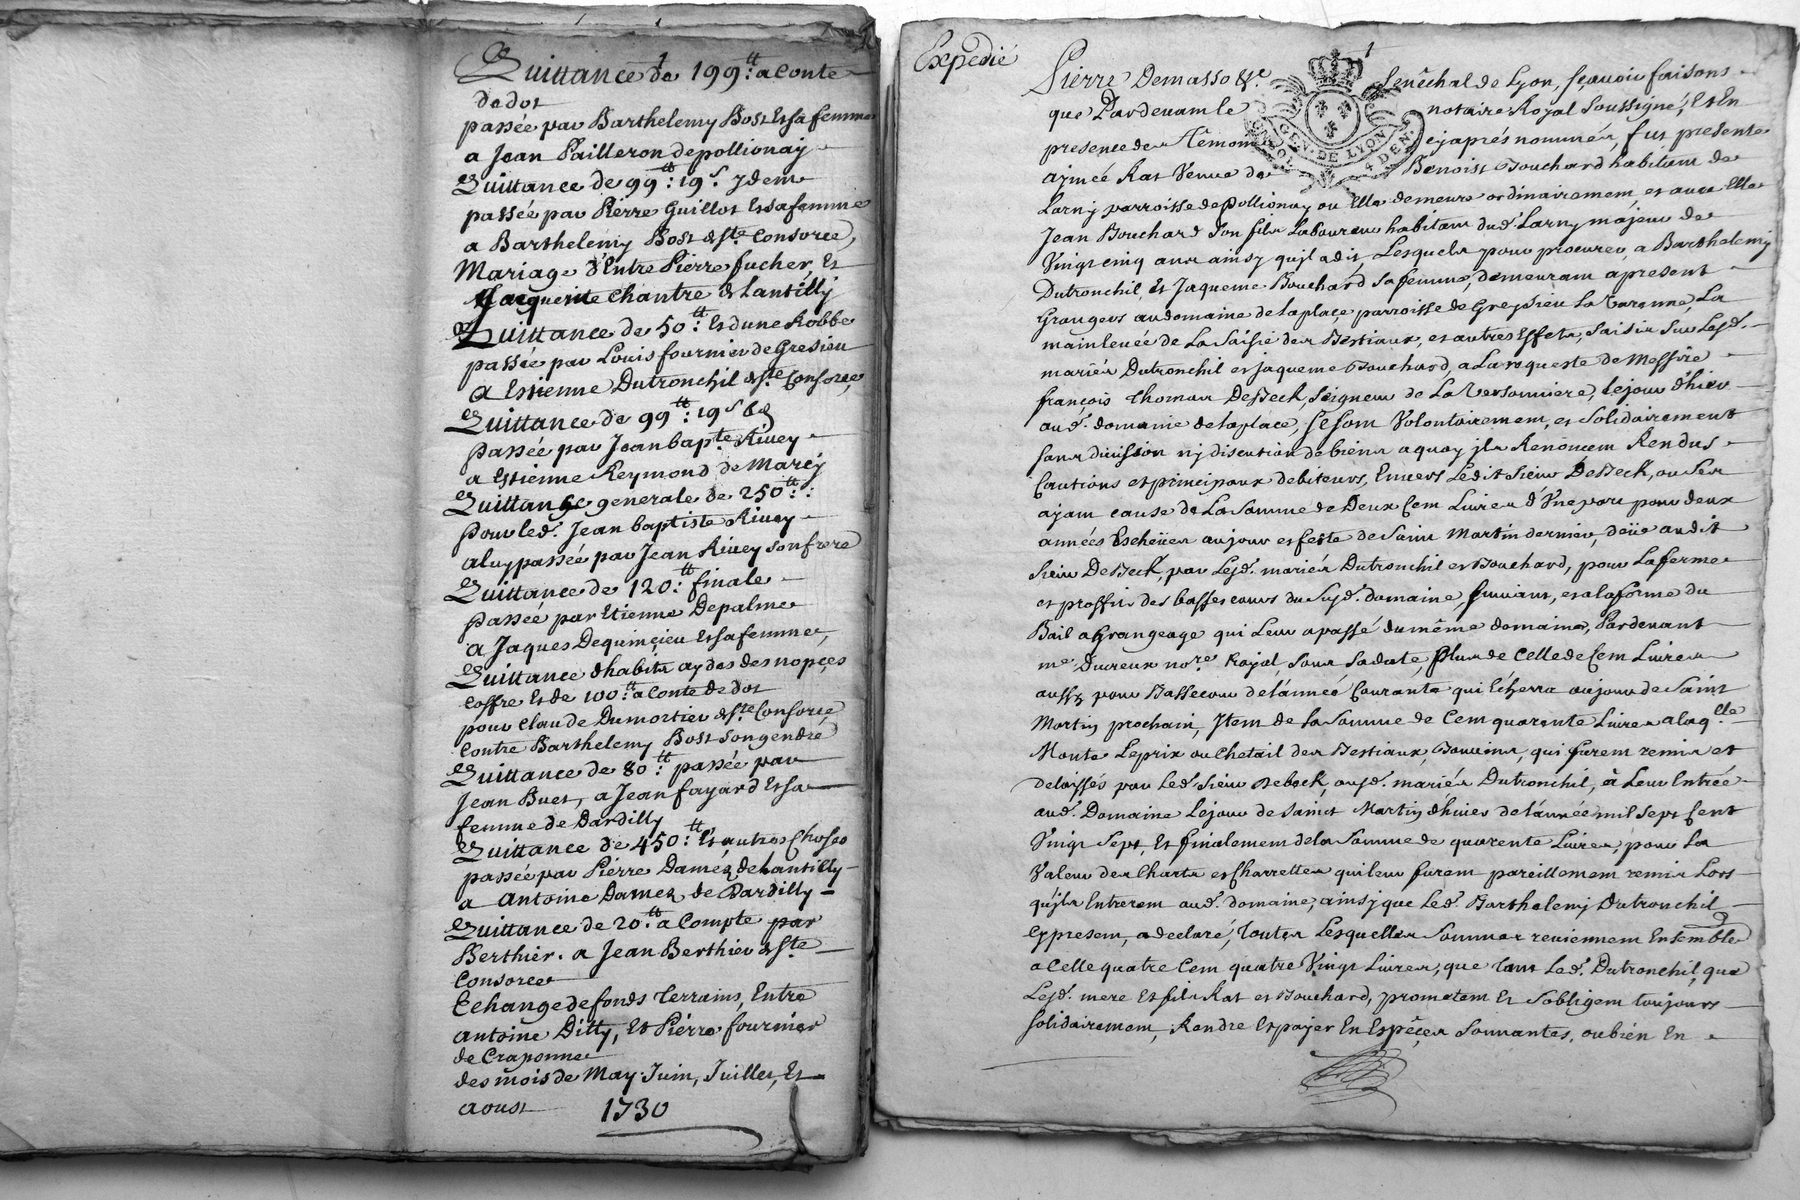 Quittance de 199tt: a Conte
de dot
passée par Barthelemy Bost Et sa femme
a Jean Pailleron de pollionay
Quittance de 99tt: 19s ydem
passée par Pierre Guillot Et sa femme
a Barthelemy Bost de Ste Consorce,
Mariage d'Entre Pierre fucher, Et
Jacquemite Chantre de Lantilly
Quittance de 50tt: Et dune Robbe
passée par Louis fournier de Gresieu
a Estienne Dutronchil de Ste Consorce,
Quittance de 99tt: 19s 6d
passée par Jean bapte Rivey
a Estienne Reymond de Marcy
Quittance generale de 250tt:
pour led. Jean baptiste Rivey
a luy passée par Jean Rivey son frere
Quittance de 120tt: finale
passée par Etienne Depalme
a Jaques Dequinçieu Et sa femme,
Quittance dhabits aydes des nopçes
Coffre Et de 100tt a Conte de dot
pour Claude Dumortier de Ste Consorce,
Contre Barthelemy Bost son gendre
Quittance de 80tt: passée par
Jean Buet, a Jean fayard Et sa
femme de Dardilly
Quittance de 450tt: Et autres Choses
passée par Pierre Damez de Lantilly
a Antoine Damez de Dardilly
Quittance de 20tt a Compte par
Berthier. a Jean Berthier de Ste
Consorce
Echange de fonds terrains, Entre
Antoine Ditty, Et Pierre fournier
de Craponne
des mois de May Juin, Juillet, Et
aoust 1730
Expedié
Pierre Demasso Senéchal de Lyon, sçavoir faisons
que Pardevant le notaire Royal soussigné, Et En
presence des Témoins cy aprés nommés, fut presente
aymée Rat Veuve de Benoist Bouchard habitant de
Larny parroisse de pollionay ou Elle demeure ordinairement, et avec Elle
Jean Bouchard son fils Laboureur habitant dud. Larny majeur de
Vingt cinq ans ainsy qu'il a dit, Lesquels pour procurer, a Barthelemy
Dutronchil, Et Jaqueme Bouchard sa femme, demeurant a present
Grangers au domaine de la place parroisse de Gresieu La Varenne, La
mainlevée de La Saisie des Bestiaux, et autres Effets, saisis sur Lesd.
mariés Dutronchil et jaqueme Bouchard, a La requeste de Messire
françois Thomas DeBeck, Seigneur de La Versonniere, le jour d'hier
aud. domaine de la place, se sont Volontairement, et solidairement
sans division ny discution de biens a quoy ils Renonçent Rendus
Cautions et principaux debiteurs, Envers Ledit Sieur DeBeck, ou ses
ayant cause de La Somme de Deux Cent Livres d'Une part pour deux
années Escheües au jour et feste de Saint Martin dernier, deüe audit
Sieur DeBeck, par Lesd. mariés Dutronchil et Bouchard, pour La ferme
et proffits des basses cours du susd. domaine, suivant, et a la forme du
Bail a Grangeage qui Leur a passé du même domaine, Pardevant
me. Dureux nore. Royal, sous sa date, Plus de Celle de Cent Livres
aussy pour Bassecour de l'année Courante qui Echerra au jour de Saint
Martin prochain, Item de la Somme de Cent quarente Livres a laqlle
Monte Le prix ou Chetail des Bestiaux, Bouvins, qui furent remis et
delaissés par Led. Sieur Debeck, ausd. mariés Dutronchil, à Leur Entrée
aud. Domaine Le jour de Saint Martin d'hiver de l'année mil sept Cent
Vingt Sept, Et finalement de la Somme de quarente Livres, pour La
Valeur des Charts et Charrettes qui leur furent pareillement remis Lors
qu'ils Entrerent aud. domaine, ainsy que Led. Barthelemy Dutronchil
cy present, a declaré, toutes Lesquelles Sommes reviennent Ensemble
a Celle quatre Cent quatre Vingt Livres, que tant Led. Dutronchil, que
Lesd. mere Et fils Rat et Bouchard, promettent Et sobligent toujours
solidairement, Rendre Et payer En Espéçes Sonnantes, ou bien En
GEN. DE LYON
4 DEN.